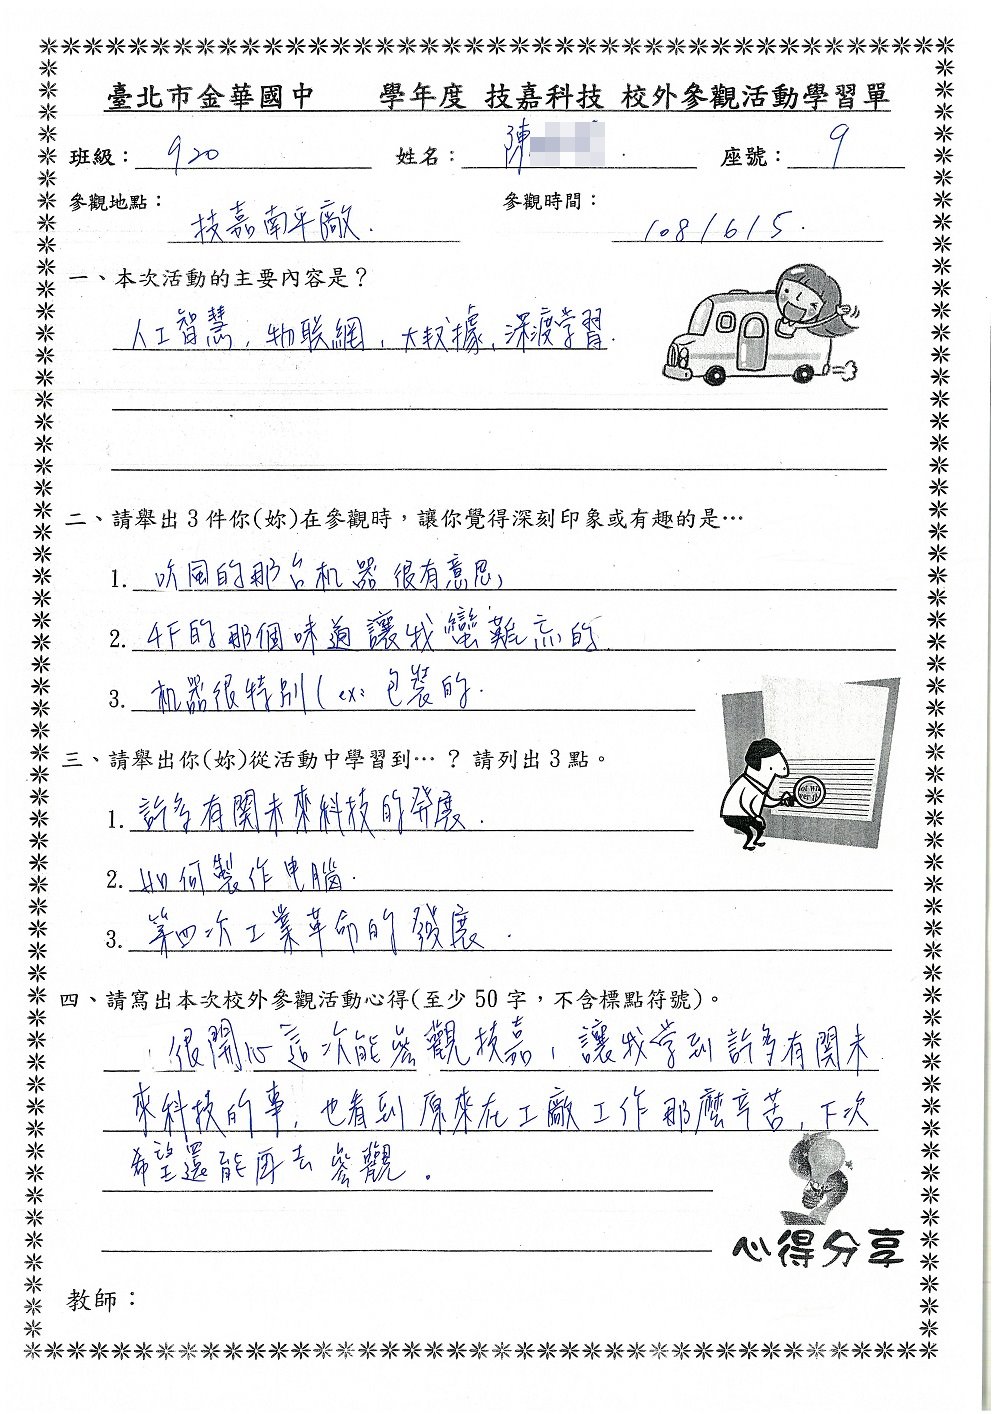 臺北市金華國中 學年度 技嘉科技 校外參觀活動學習單
班級： 920 姓名： 陳 座號： 9
參觀地點： 技嘉南平廠. 參觀時間： 108/6/5.
一、本次活動的主要內容是？
人工智慧，物联網，大数據，深度学習.
二、請舉出3件你(妳)在參觀時，讓你覺得深刻印象或有趣的是…
1. 吹風的那台机器很有意思,
2. 4F的那個味道讓我蠻難忘的
3. 机器很特別(ex: 包裝的.
三、請舉出你(妳)從活動中學習到…？請列出3點。
1. 許多有関未來科技的發展.
2. 如何製作电腦.
3. 第四次工業革命的發展.
四、請寫出本次校外參觀活動心得(至少50字，不含標點符號)。
很開心這次能參觀技嘉，讓我学到許多有関未
來科技的事，也看到原來在工廠工作那麼辛苦，下次
希望還能再去參觀。
心得分享
教師：